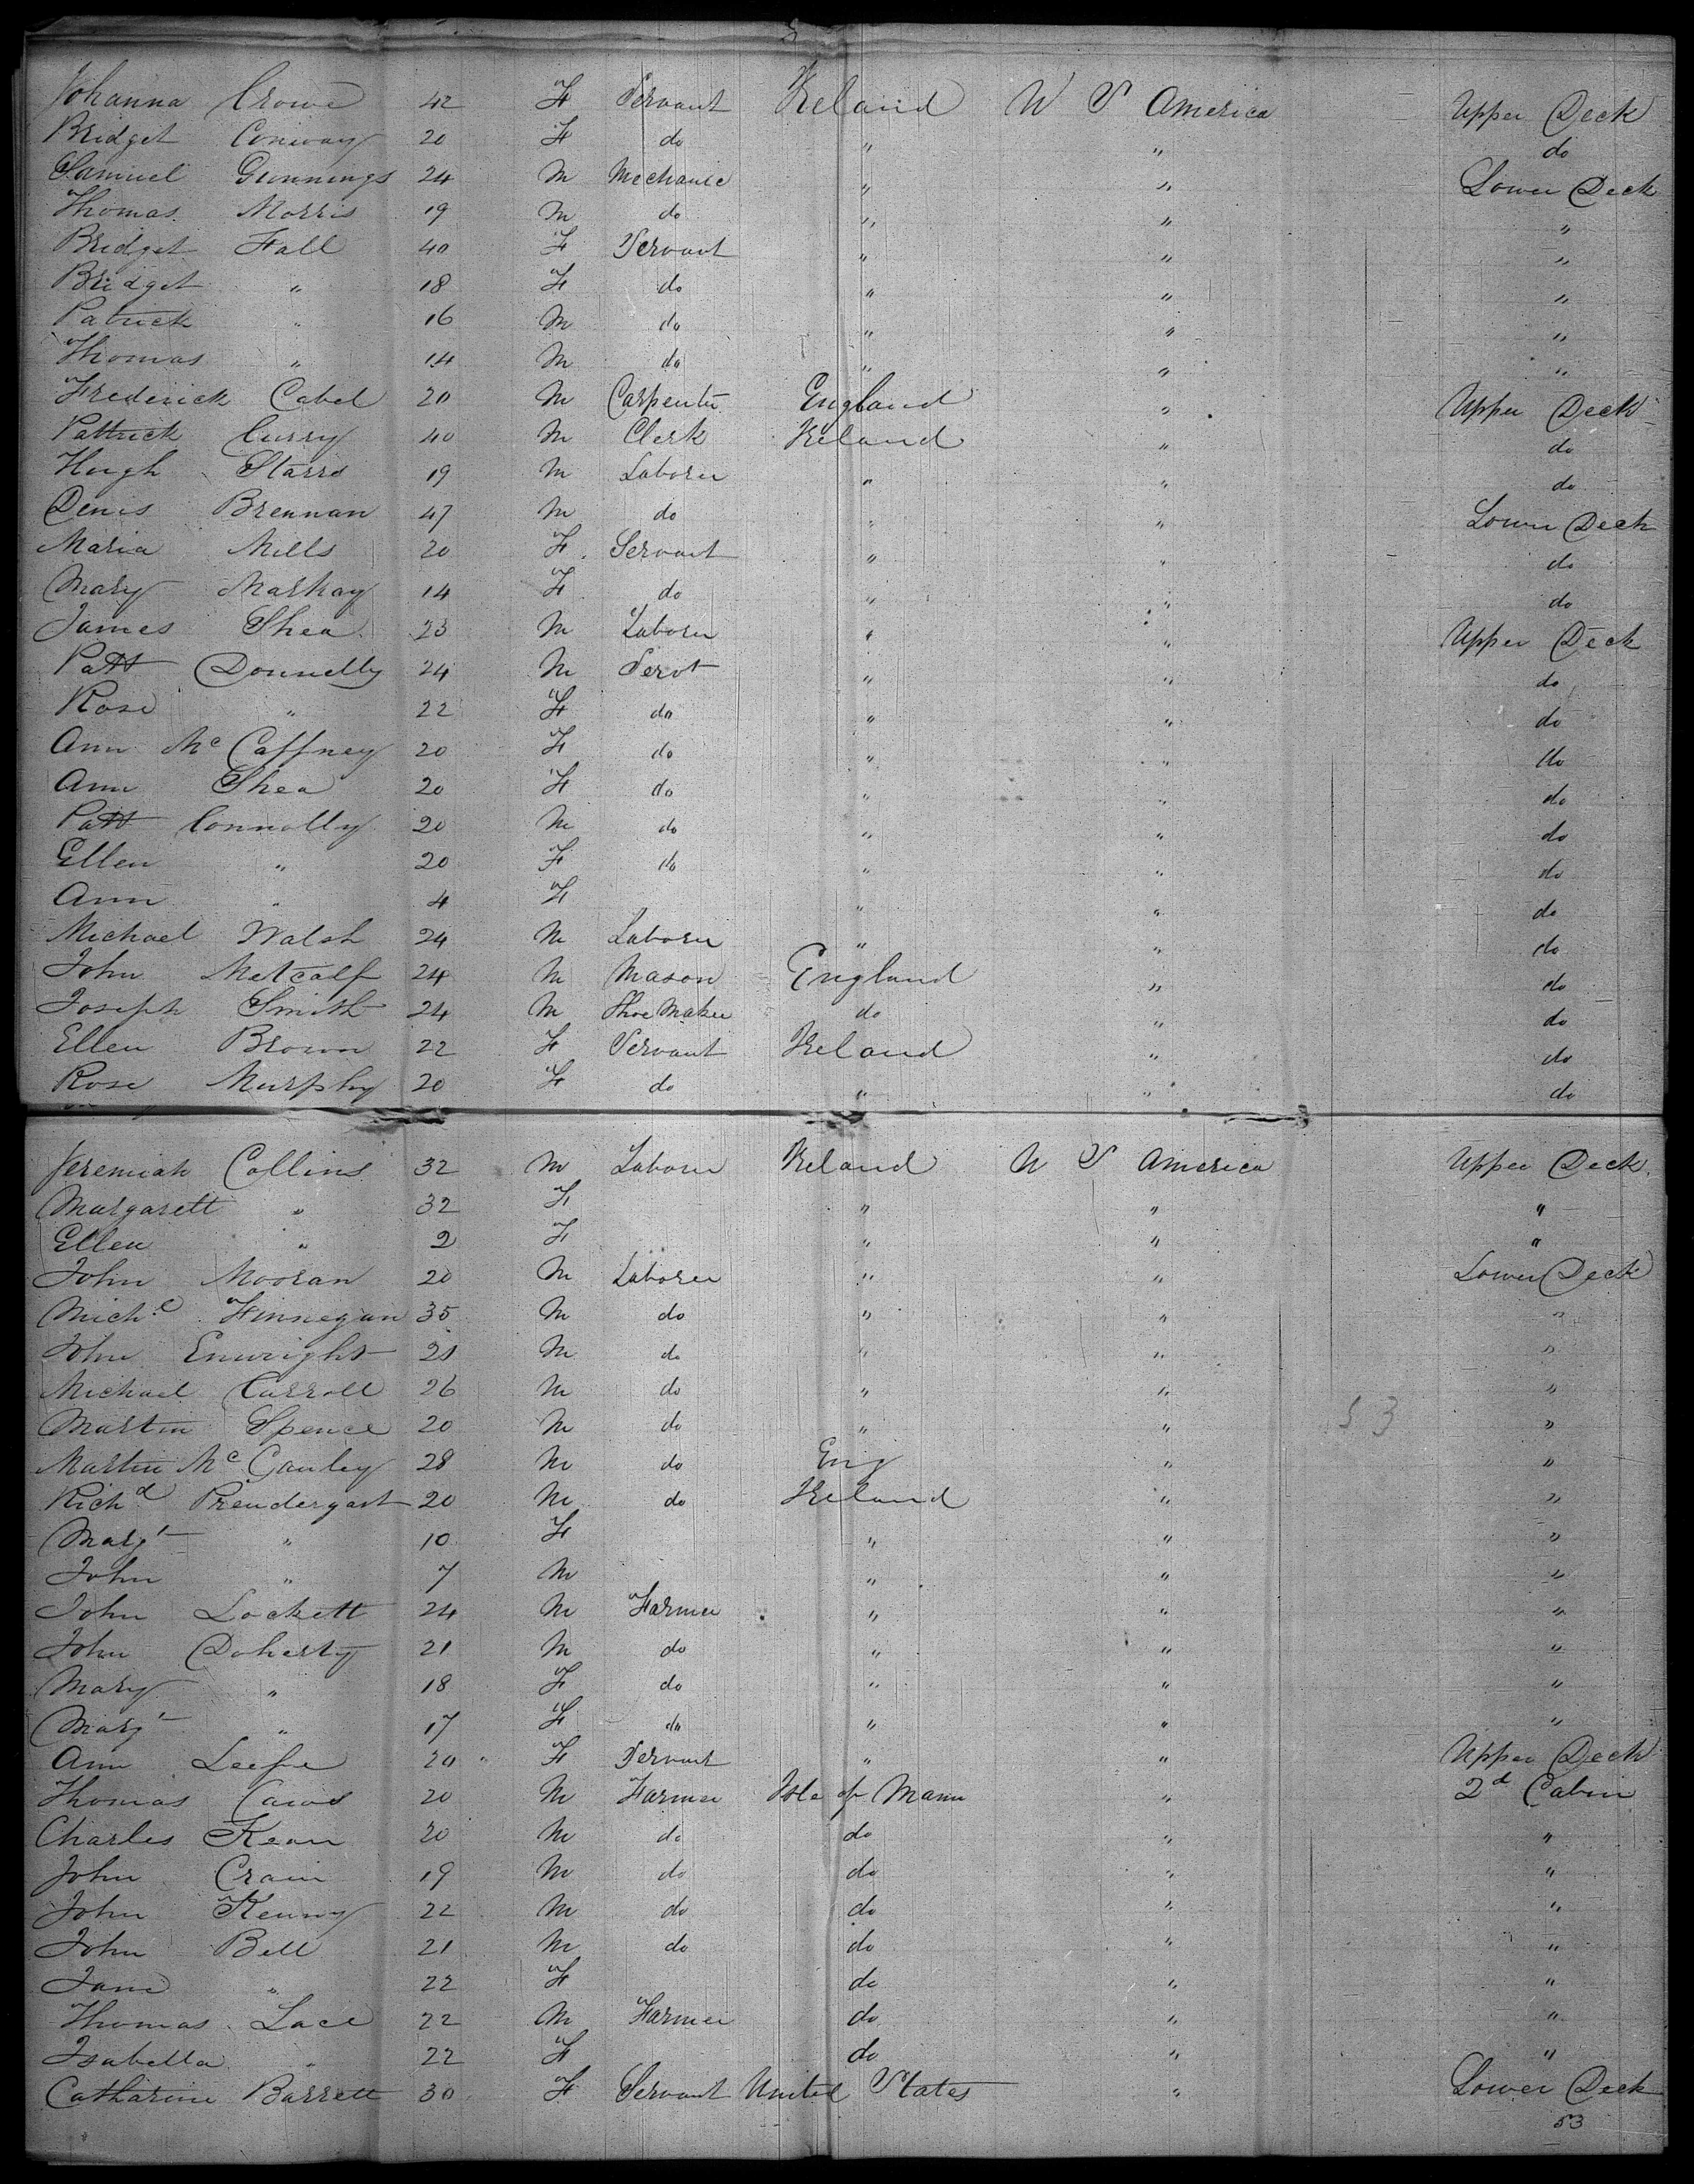 Johanna Crowe 42 F Servant Ireland U S America Upper Deck
Bridget Conway 20 F do " " do
Samuel Gunnings 24 M Mechanic " " Lower Deck
Thomas Morris 19 M do " " "
Bridget Fall 40 F Servant " " "
Bridget " 18 F do " " "
Patrick " 16 M do " " "
Thomas " 14 M do " " "
Frederick Cabel 20 M Carpenter England " Upper Deck
Pattrick Curry 40 M Clerk Ireland " do
Hugh Starrs 19 M Laborer " " do
Denis Brennan 47 M do " " Lower Deck
Maria Mills 20 F Servant " " do
Mary Markay 14 F do " " do
James Shea 23 M Laborer " " Upper Deck
Patt Donnelly 24 M Servt " " do
Rose " 22 F do " " do
Ann Mc Caffney 20 F do " " do
Ann Shea 20 F do " " do
Patt Connolly 20 M do " " do
Ellen " 20 F do " " do
Ann " 4 F " " do
Michael Walsh 24 M Laborer " " do
John Metcalf 24 M Mason England " do
Joseph Smith 24 M Shoe Maker do " do
Ellen Brown 22 F Servant Ireland " do
Rose Murphy 20 F do " " do
Jeremiah Collins 32 M Laborer Ireland U S America Upper Deck
Margarett " 32 F " " "
Ellen " 2 F " " "
John Mooran 20 M Laborer " " Lower Deck
Michl Finnegan 35 M do " " "
John Enwright 21 M do " " "
Michael Carroll 26 M do " " "
Martin Spence 20 M do " " "
53
Martin Mc Gauley 28 M do Eng " "
Richd Prendergast 20 M do Ireland " "
Margt " 10 F " " "
John " 7 M " " "
John Lockett 24 M Farmer " " "
John Doherty 21 M do " " "
Mary " 18 F do " " "
Margt " 17 F do " " "
Ann 20 F Servant " " Upper Deck
Thomas 20 M Farmer Isle of Mann " 2d Cabin
Charles Kean 20 M do do " "
John Crain 19 M do do " "
John Kenny 22 M do do " "
John Bell 21 M do do " "
Jane " 22 F do " "
Thomas Lace 22 M Farmer do " "
Isabella " 22 F do " "
Catharine Barrett 30 F Servant United States " Lower Deck
53